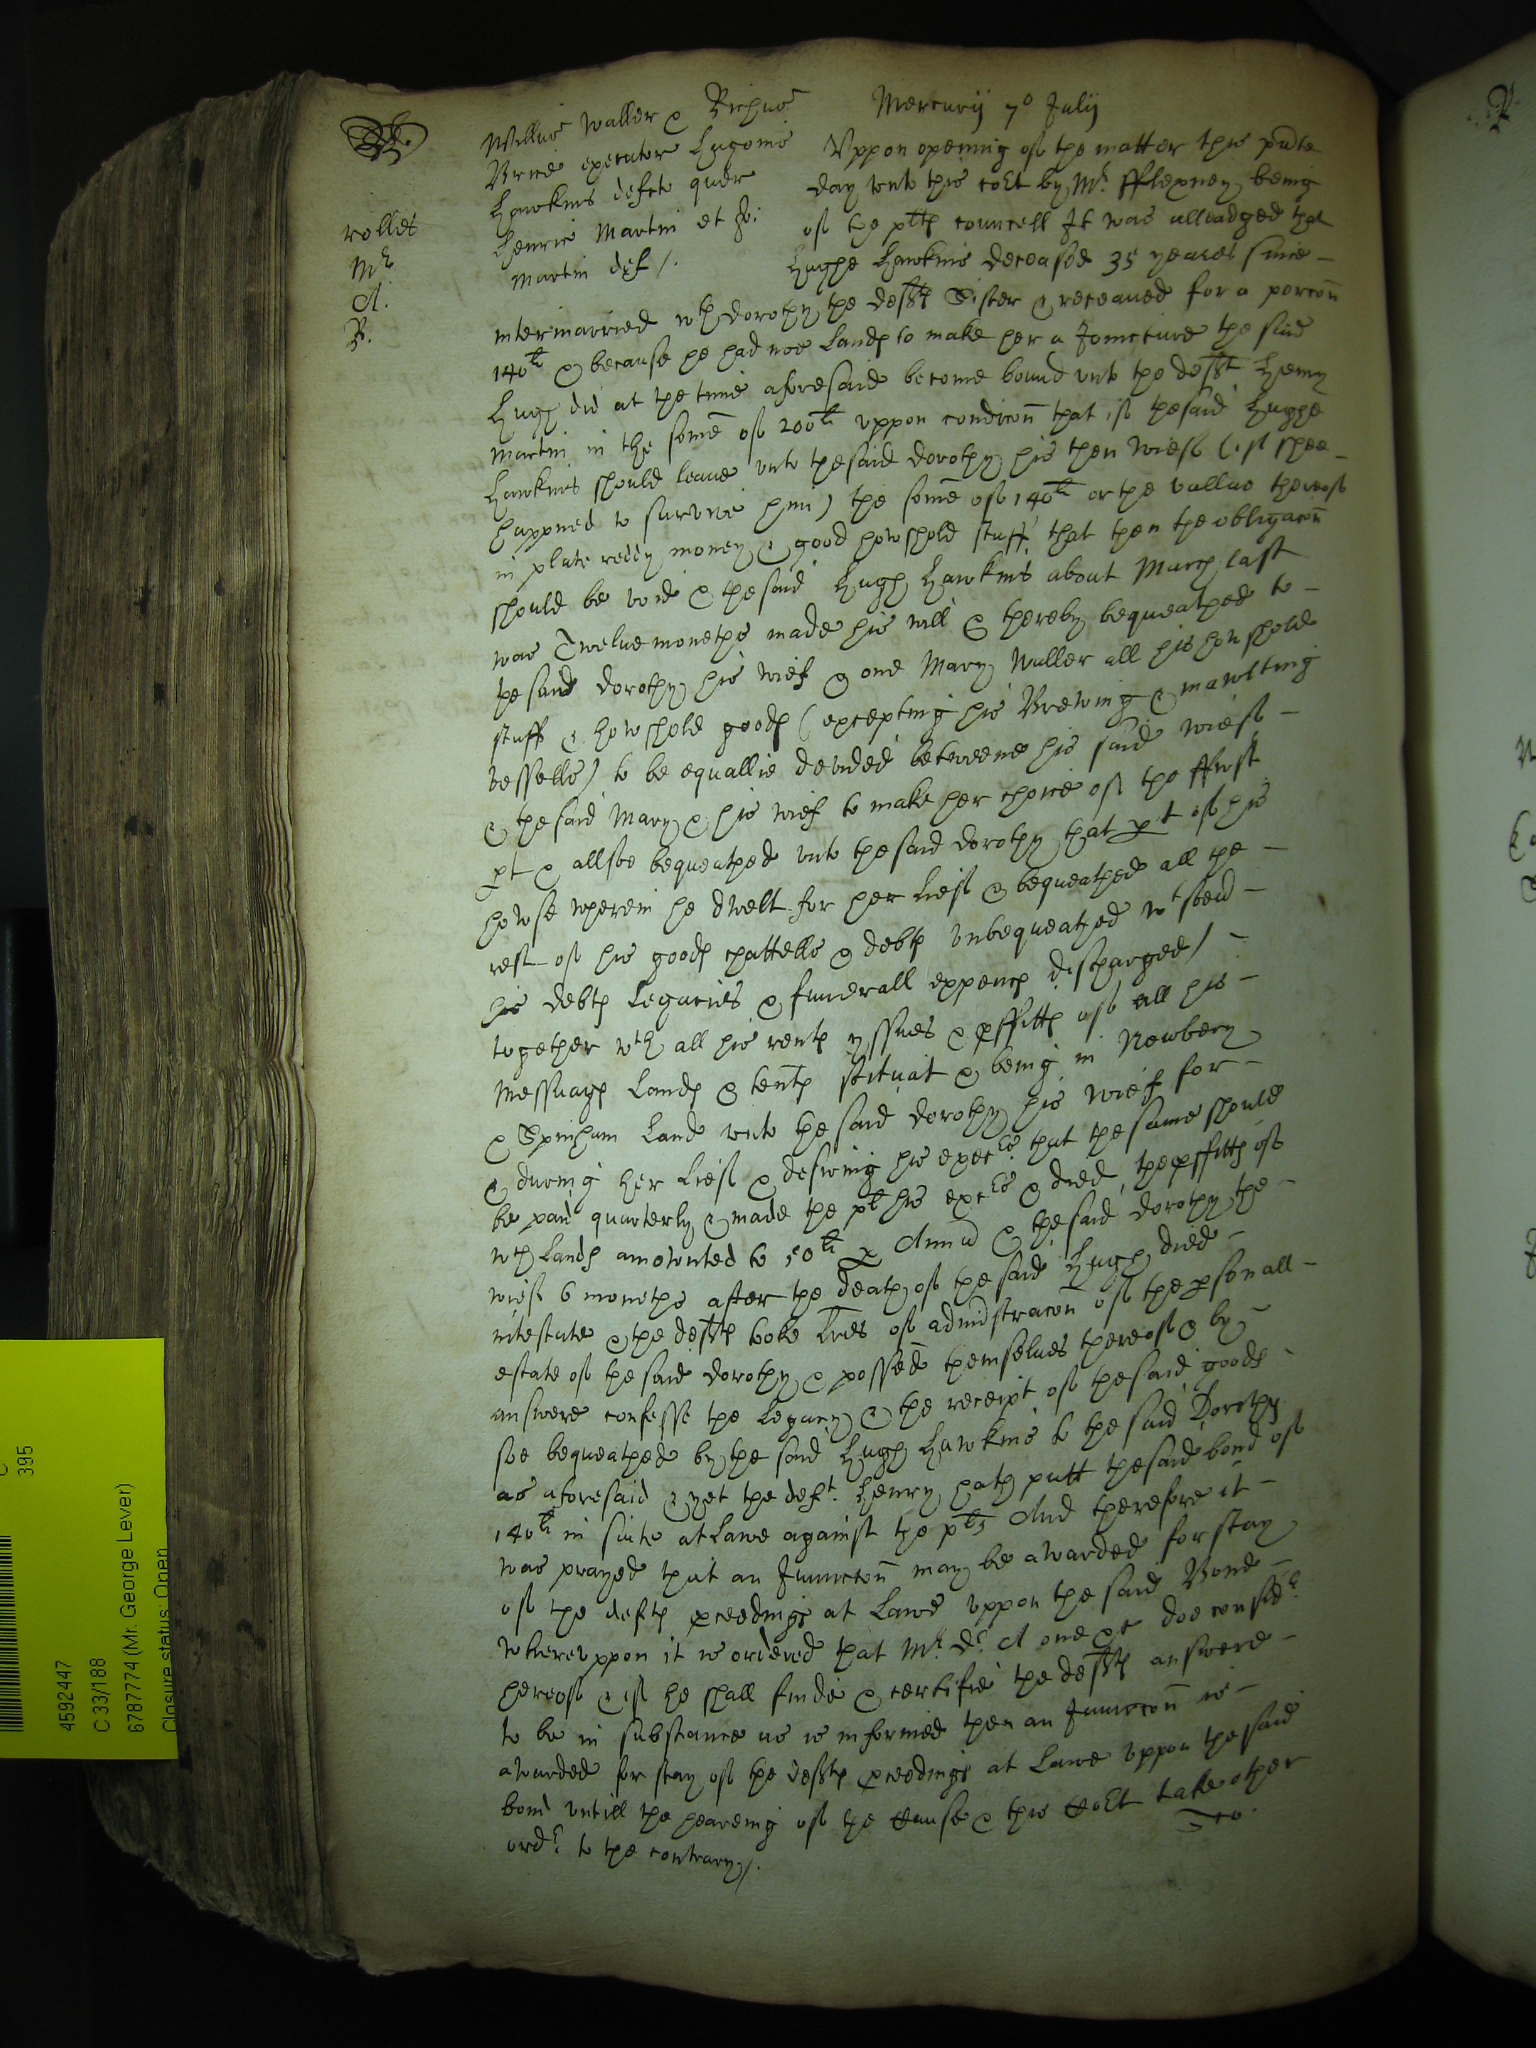 Mercurij 7o Julij
Willus Waller & Richus
Brne executor Hugonis
Hawkins defcti quer
Henric Martin et Joi
Martin def /.
collet
Mr
A.
R.
Vppon openinge of the matter this pnte
day vnto this cort by Mr fflexney being
of the pltes councell It was alleadged that
Hughe Hawkins deceased 35 yeares since
intermarried wth dorothy the deftes Sister & receaued for a porcon
140li & because he had noe Landes to make her a Joincture the said
Hugh did at the time aforesaid become bound vnto the deft Henry
Martin in the some of 200li vppon condicon that if the said Hughe
Hawkins should leaue vnto the said dorothy his then wief (if shee
happned to survive him) the some of 140li or the vallue thereof
in plate reddy money & good howshold stuff that then the obligacon
should be void & the said Hugh Hawkins about March last
was Twelue monethes made his will & thereby bequeathed to
the said dorothy his wief & one Mary Waller all his howshold
stuff & howshold goodes (excepting his Brewing & mawlting
vessells) to be equallie devided betweene his said wief
& the said Mary & his wief to make her choice of the ffirst
pt & allsoe bequeathed vnto the said dorothy that pt of his
howse wherein he dwelt for her Lief & bequeathed all the
rest of his goodes chattells & debtes vnbequeathed
his debtes Legacies & funerall expences discharged)
together wth all his rentes yssues & pffittes of all his
Messuages Landes & tentes scituat & being in Newbery
& Spinham Land vnto the said dorothy his wief for
& during her Lief & desiring his execrs that the same should
be paid quarterly & made the pl his execrs & died, the pffittes of
wch Landes amownted to 50li p Annu & the said dorothy the
wief 6 monethes after the death of the said Hugh died
intestate & the deftes tooke Lres of administracon of the psonall
estate of the said dorothy & possed themselues thereof & by
answere confesse the Legacy & the receipt of the said goodes
soe bequeathed by the said Hugh Hawkins to the said Dorothy
as aforesaid & yet the deft. Henry hath putt the said bond of
140li in suite at Lawe against the pltes And therefore it
was prayed that an Juniccon may be awarded for stay
of the deftes pceedinges at Lawe vppon the said Bond
Wherevppon it is ordered that Mr Dr A one &c doe considr
hereof & if he shall finde & certifie the deftes answere
to be in substance as is informed then an Juniccon is
awarded for stay of the deftes pceedinges at Lawe vppon the said
bond vntill the heareing of the Cause & this Cort take other
ordr to the contrary /.
395
4592447
C 33/188
6787774 (Mr. George Lever)
Closure status: Open